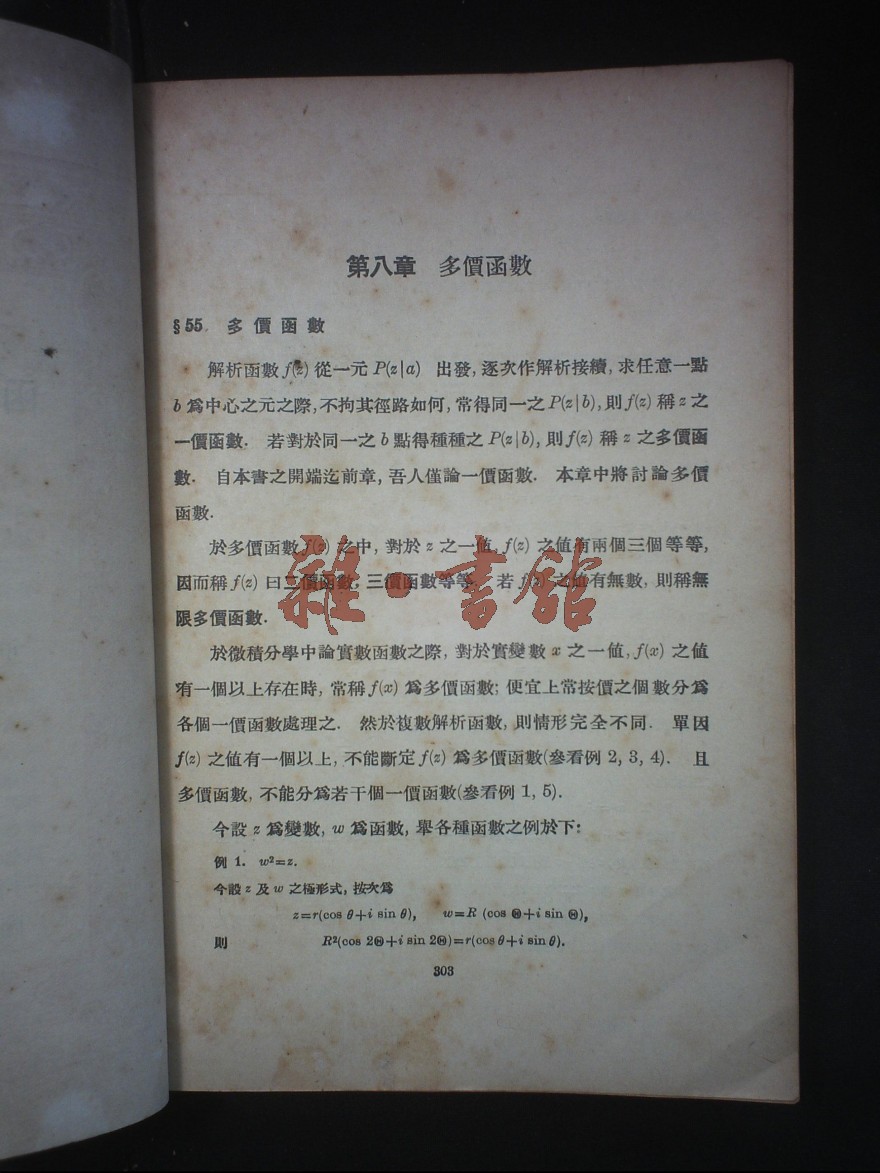 第八章 多價函數
§55. 多價函數
解析函數 f(z) 從一元 P(z|a) 出發, 逐次作解析接續, 求任意一點
b 爲中心之元之際, 不拘其徑路如何, 常得同一之 P(z|b), 則 f(z) 稱 z 之
一價函數. 若對於同一之 b 點得種種之 P(z|b), 則 f(z) 稱 z 之多價函
數. 自本書之開端迄前章, 吾人僅論一價函數. 本章中將討論多價
函數.
於多價函數 f(z) 之中, 對於 z 之一値, f(z) 之値有兩個三個等等,
因而稱 f(z) 曰二價函數, 三價函數等等. 若 f(z) 之値有無數, 則稱無
限多價函數.
雜·書館
於微積分學中論實數函數之際, 對於實變數 x 之一値, f(x) 之値
有一個以上存在時, 常稱 f(x) 爲多價函數; 便宜上常按價之個數分爲
各個一價函數處理之. 然於複數解析函數, 則情形完全不同. 單因
f(z) 之値有一個以上, 不能斷定 f(z) 爲多價函數(參看例 2, 3, 4). 且
多價函數, 不能分爲若干個一價函數(參看例 1, 5).
今設 z 爲變數, w 爲函數, 舉各種函數之例於下:
例 1. w²=z.
今設 z 及 w 之極形式, 按次爲
z=r(cos θ+i sin θ), w=R (cos Θ+i sin Θ),
則 R²(cos 2Θ+i sin 2Θ)=r(cos θ+i sin θ).
303